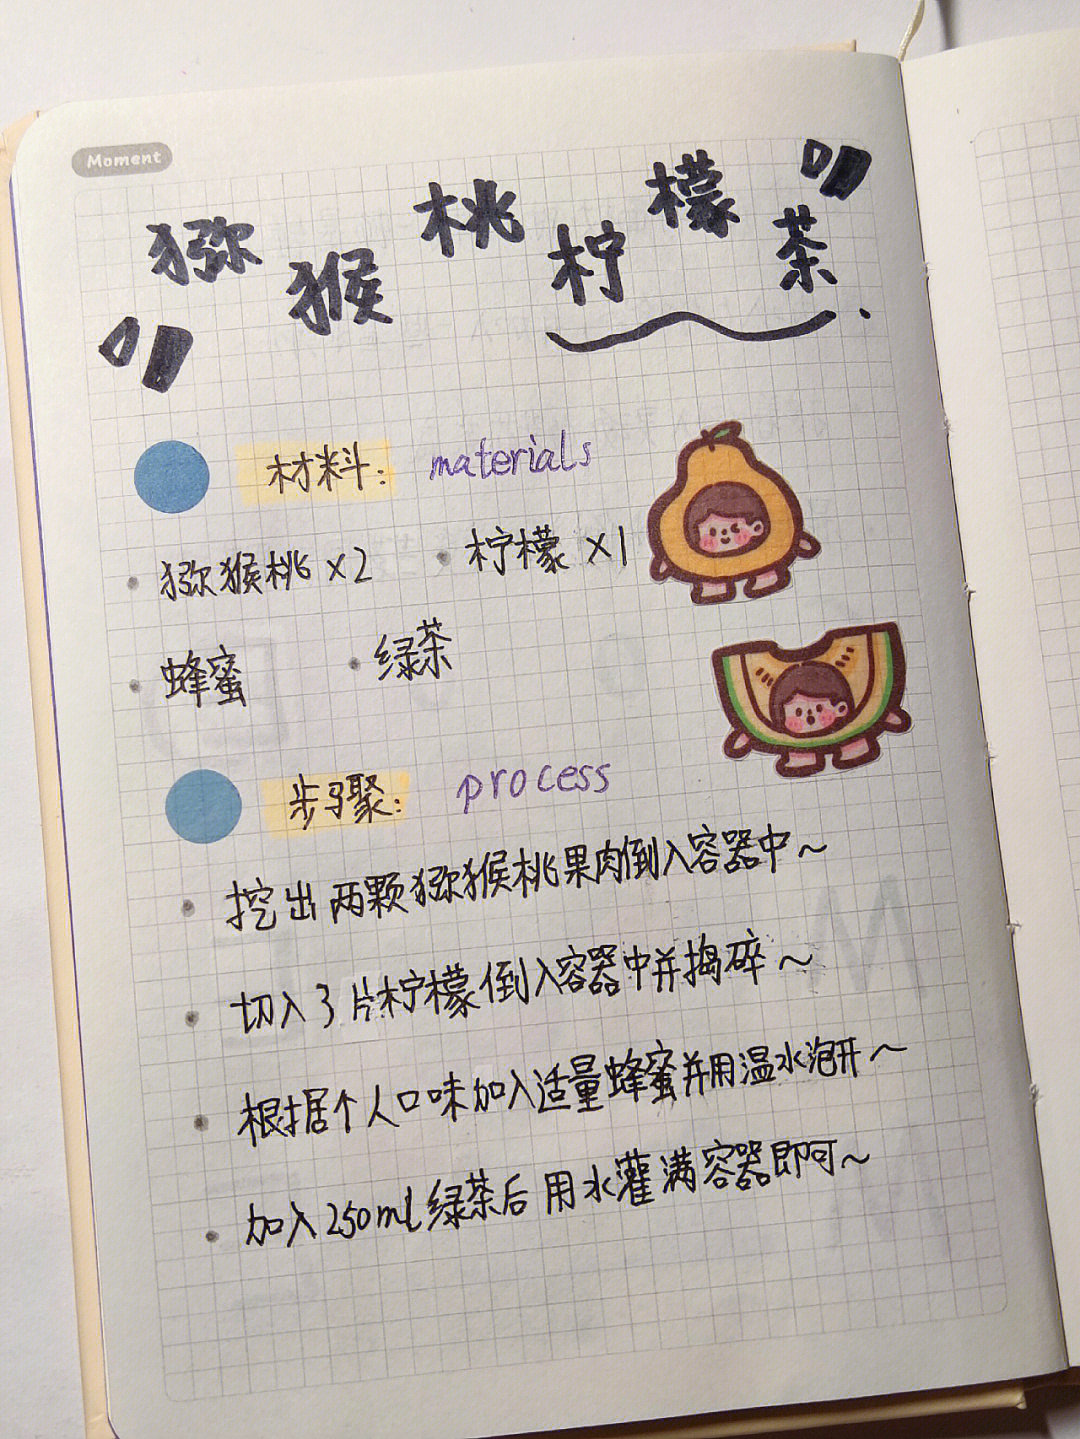 Moment
猕猴桃柠檬茶
材料: materials
猕猴桃 x2 柠檬 x1
蜂蜜 绿茶
步骤: process
挖出两颗猕猴桃果肉倒入容器中~
切入3片柠檬倒入容器中并捣碎~
根据个人口味加入适量蜂蜜并用温水泡开~
加入250ml绿茶后用水灌满容器即可~